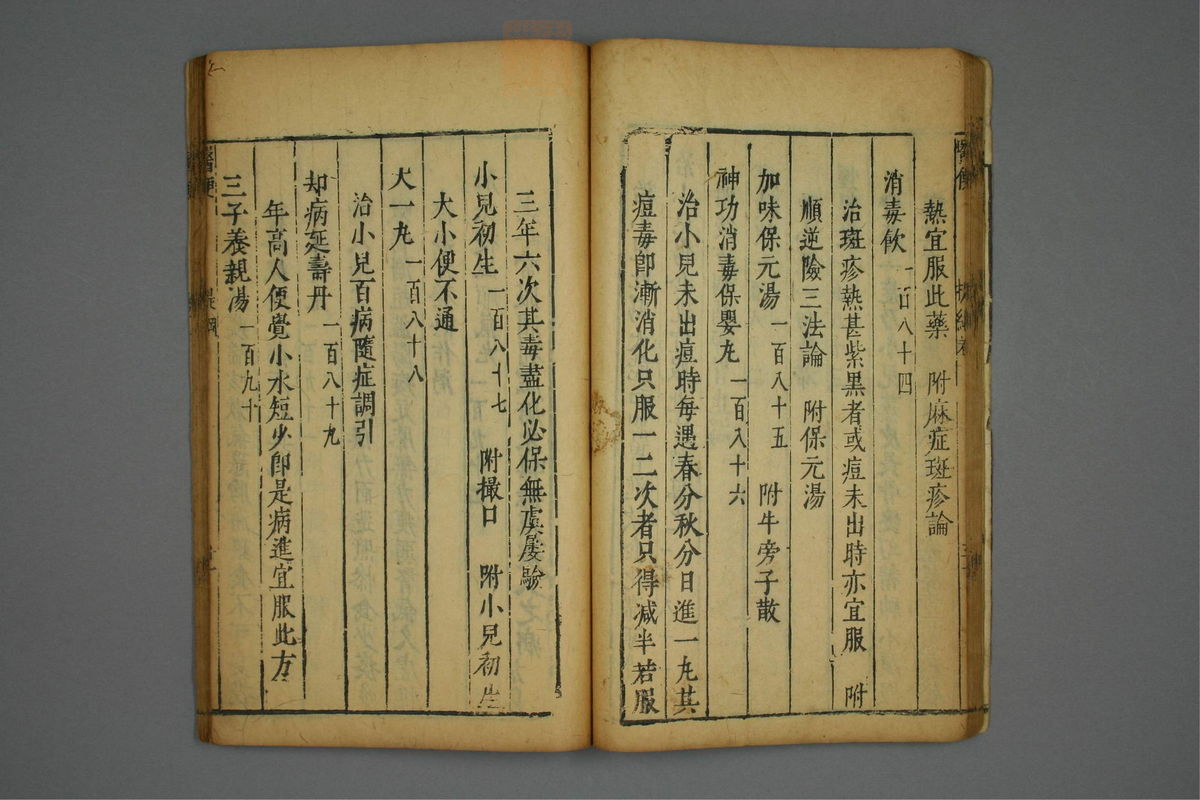 熱宜服此藥　附麻症斑疹論
消毒飲　一百八十四
治斑疹熱甚紫黑者或痘未出時亦宜服　附
順逆險三法論　附保元湯
加味保元湯　一百八十五　附牛旁子散
神功消毒保嬰丸　一百八十六
治小兒未出痘時每遇春分秋分日進一丸其
痘毒卽漸消化只服一二次者只得减半若服
三年六次其毒盡化必保無虞屢驗
小兒初生　一百八十七　附撮口　附小兒初生
大小便不通
天一丸　一百八十八
治小兒百病隨症調引
却病延壽丹　一百八十九
年高人便覺小水短少卽是病進宜服此方
三子養親湯　一百九十
醫便